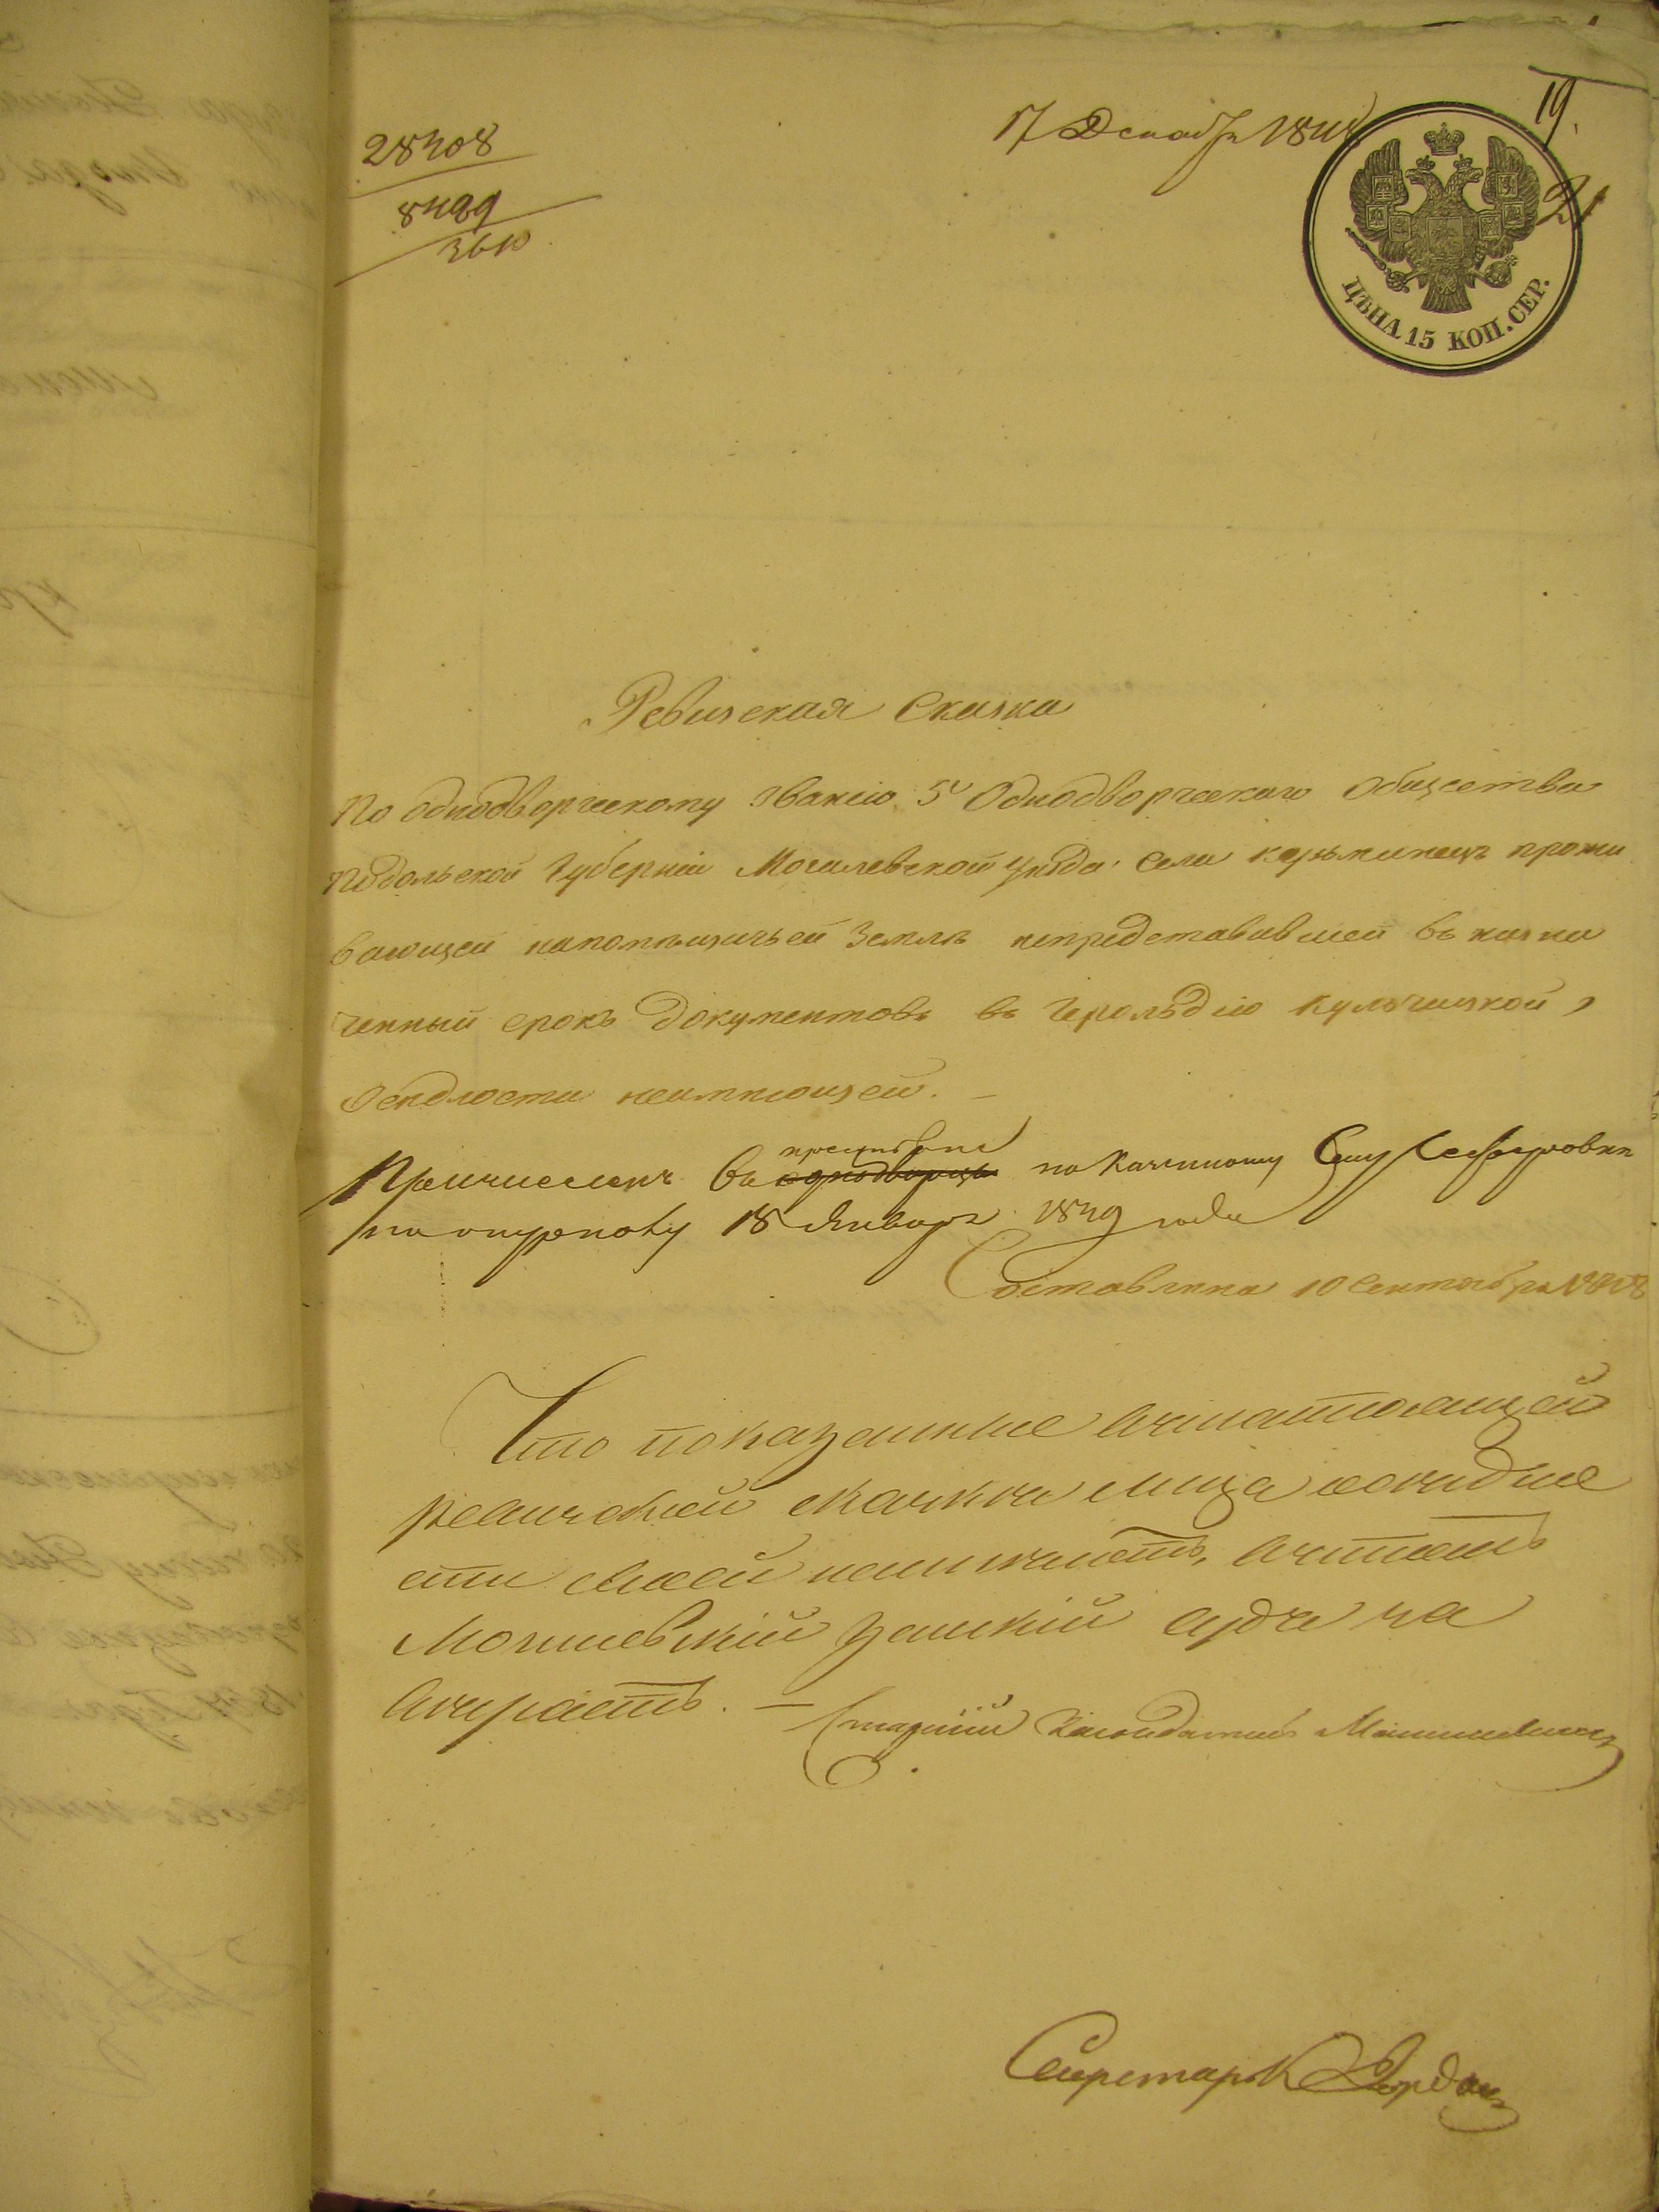 28408
8489
3610
17 Декабря 1848
19.
21
ЦѢНА 15 КОП. СЕР.
Ревизская Сказка
По однодворческому званію 5го Однодворческаго Общества
Подольской Губерніи Могилевской уѣзда Села Кузьминецъ прожи
вающей напомѣщичьей Землѣ непредставившей въ назна
ченный срокъ документовъ въ Герольдію Кульчицкой,
Осѣдлости неимѣющей. —
Причисленъ въ крестьяне однодворцы по Казенному Селу
по 18 Января 1849 года
Составлена 10 Сентября 1848
Что показанные внастоящей
ревизской сказкѣ лица осѣдло
сти своей неимѣютъ, втомъ
Могилевскій Земскій судъ за
вѣряетъ. — Старшій Засѣдатель
Секретарь